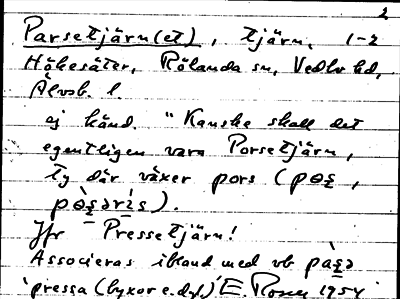 2
Parsetjärn(et), tjärn, 1-2
Håkesäter, Rölanda sn, Vedbo hd,
Älvsb. l.
ej känd. "Kanske skall det
egentligen vara Porsetjärn,
ty där växer pors (
Jfr Pressetjärn!
Associeras ibland med vb
'pressa (byxor e.dyl.)' E. 1954